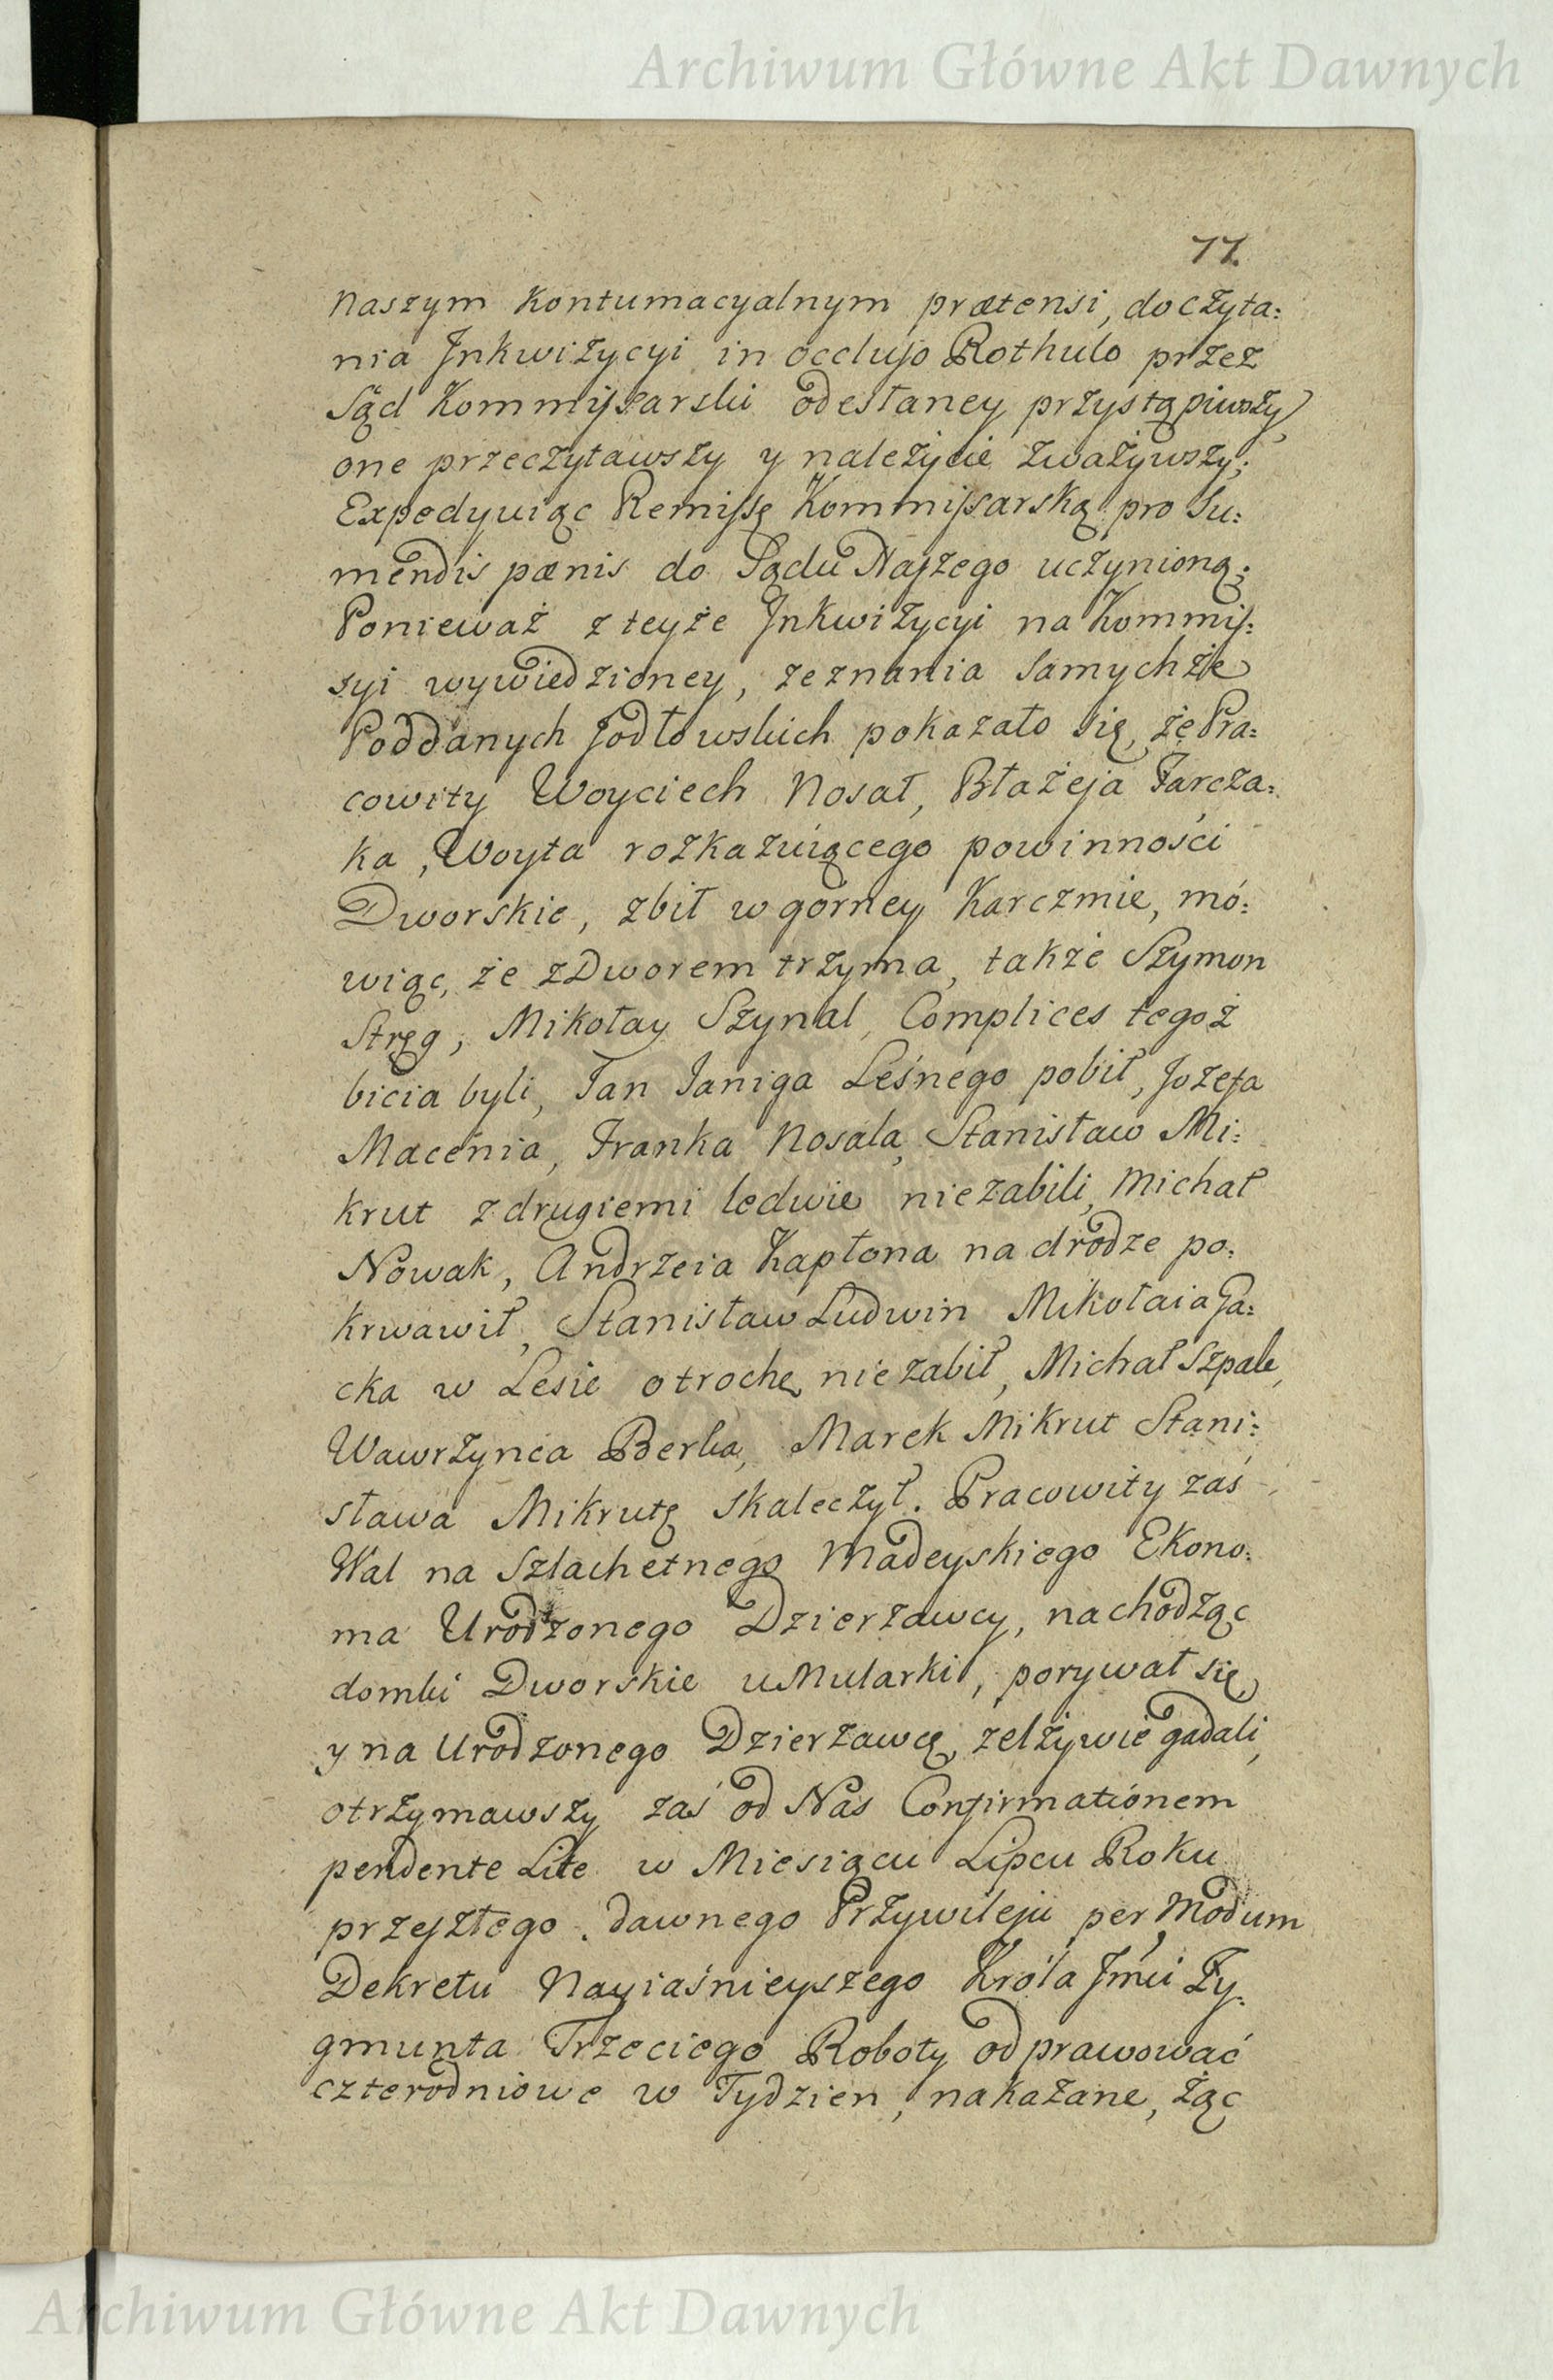 Archiwum Główne Akt Dawnych
77.
naszym kontumacyalnym prætensi, do czyta:
nia Jnkwizycyi in occluso Rothulo przez
Sąd Kommissarski odesłaney przystąpiwszy,
one przeczytawszy y należycie zważywszy;
Expedyuiąc Remissę Kommissarską pro su:
mendis pænis do Sądu Naszego uczynioną;
Ponieważ z teyże Jnkwizycyi na Kommis:
syi wywiedzioney, zeznania samychże
Poddanych Jodłowskich pokazało się, że Pra:
cowity Woyciech Nosal, Błażeja Farcza:
ka, Woyta rozkazuiącego powinności
Dworskie, zbił w gorney Karczmie, mó:
wiąc, że z Dworem trzyma, także Szymon
Stręg, Mikołay Szynal, Complices tegoż
bicia byli, Jan Janiga Leśnego pobił, Jozefa
Macenia, Franka Nosala, Stanisław Mi:
krut z drugiemi ledwie niezabili, Michał
Nowak, Andrzeia Kapłona na drodze po:
krwawił, Stanisław Ludwin Mikołaia Ga:
cka w Lesie o trochę niezabił, Michał Szpale,
Wawrzynca Berka, Marek Mikrut Stani:
sława Mikrutę skaleczył. Pracowity zaś
Wal na Szlachetnego Madeyskiego Ekono:
ma Urodzonego Dzierzawcy, nachodząc
domki Dworskie u Mularki, porywał się,
y na Urodzonego Dzierzawcę, zelżywie gadali,
otrzymawszy zaś od Nas Confirmationem
pendente Lite w Miesiącu Lipcu Roku
przeszłego dawnego Przywileju per Modum
Dekretu Nayiaśnieyszego Króla Jmci Zy:
gmunta Trzeciego Roboty odprawować
czterodniowe w Tydzien, nakazane, żąc
Archiwum Główne Akt Dawnych